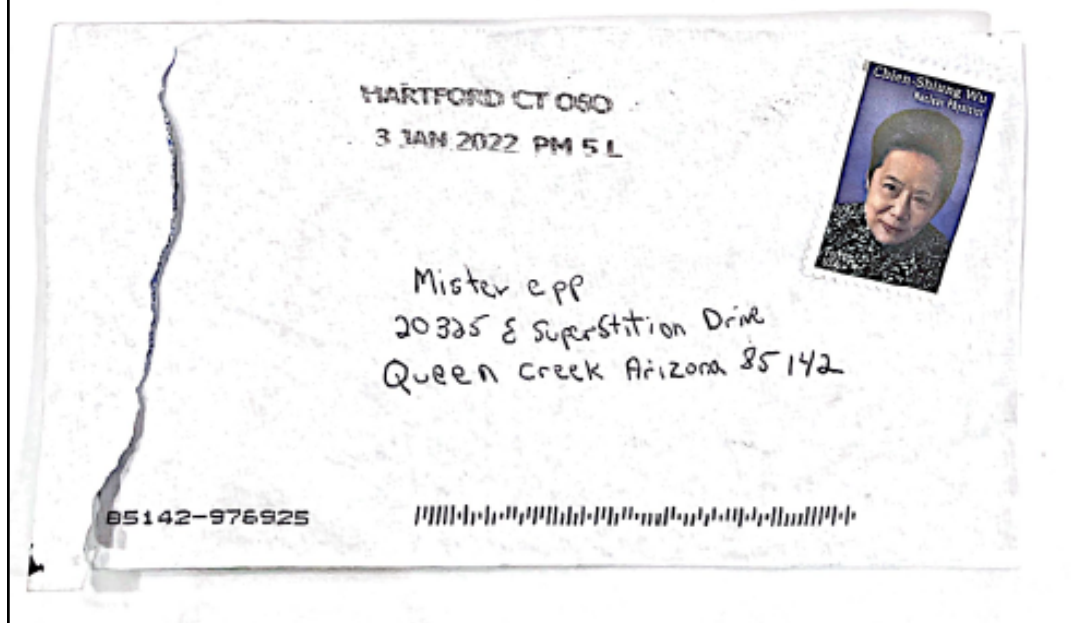 HARTFORD CT 060
3 JAN 2022 PM 5 L
Chien-Shiung Wu
Nuclear Physicist
Mister epp
20325 E Superstition Drive
Queen Creek Arizona 85142
85142-976925